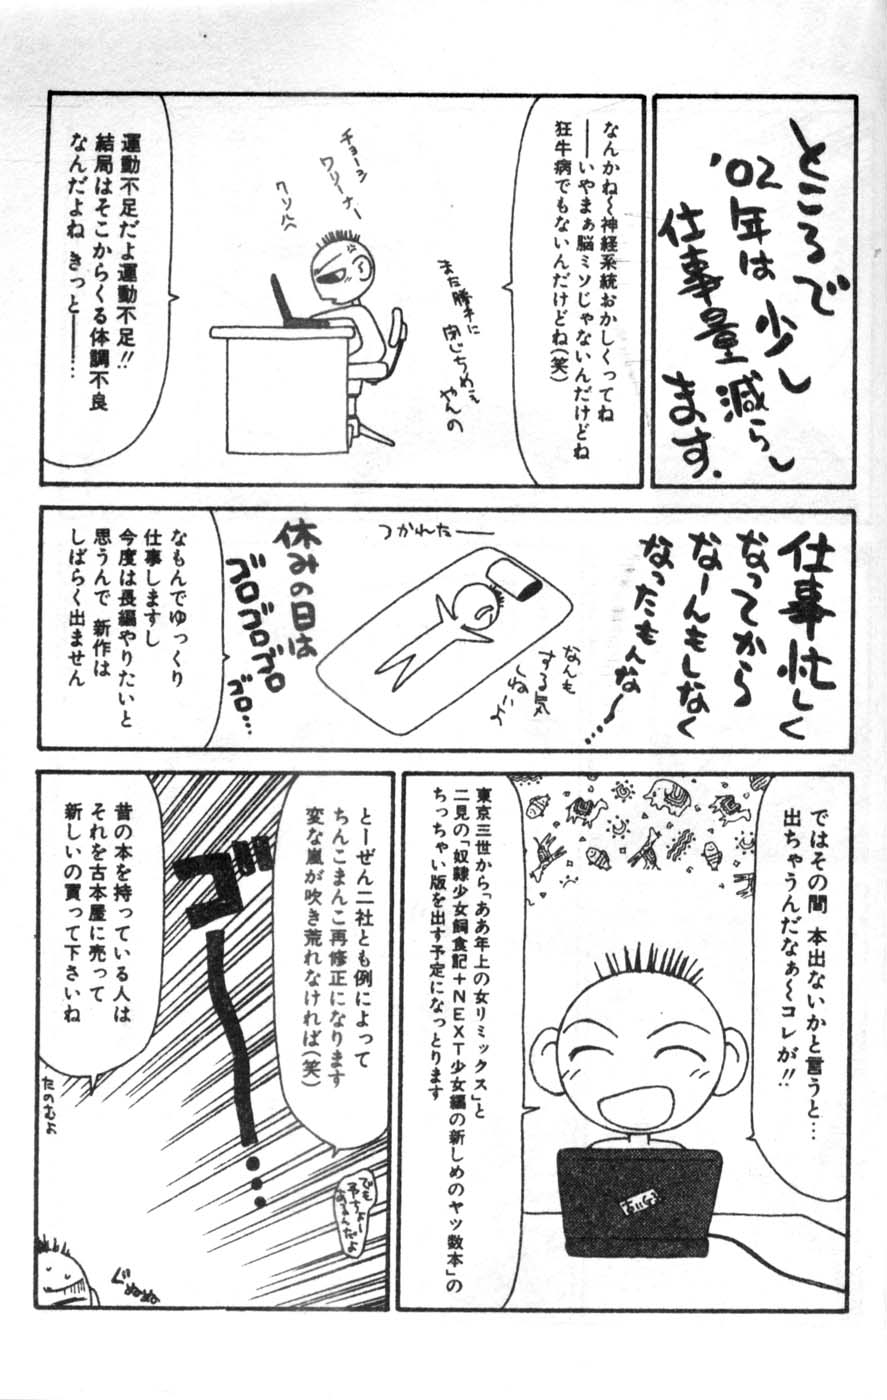 ところで
'02年は少し
仕事量減らし
ます.
なんかね〜神経系統おかしくってね
――いやまぁ脳ミソじゃないんだけどね
狂牛病でもないんだけどね(笑)
また勝手に
閉じちめぇ
やんの
チョーシ
ワリーナー
クソルヘ
運動不足だよ運動不足!!
結局はそこからくる体調不良
なんだよね きっと――…
仕事忙しく
なってから
なーんもしなく
なったもんな〜…
なんも
する気
しねーよ
つかれたー
休みの日は
ゴロゴロゴロ
ゴロ…
なもんでゆっくり
仕事しますし
今度は長編やりたいと
思うんで 新作は
しばらく出ません
ではその間 本出ないかと言うと…
出ちゃうんだなぁ〜コレが!!
東京三世から「ああ年上の女リミックス」と
二見の「奴隷少女飼食記+NEXT少女編の新しめのヤツ数本」の
ちっちゃい版を出す予定になっとります
とーぜん二社とも例によって
ちんこまんこ再修正になります
変な嵐が吹き荒れなければ(笑)
ゴー…
でも
予ちょー
あるんだよ
昔の本を持っている人は
それを古本屋に売って
新しいの買って下さいね
たのむよ
ぐぬぬぬ